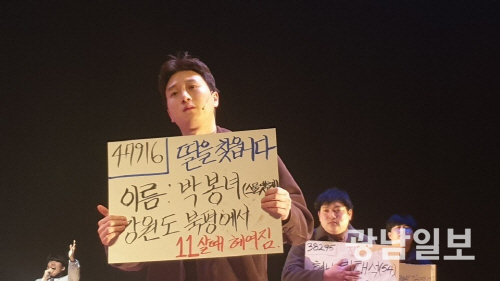 47716 딸을 찾습니다
이름: 박봉녀
강원도 북평에서
11살때 헤어짐.
38295
(54)
광남일보